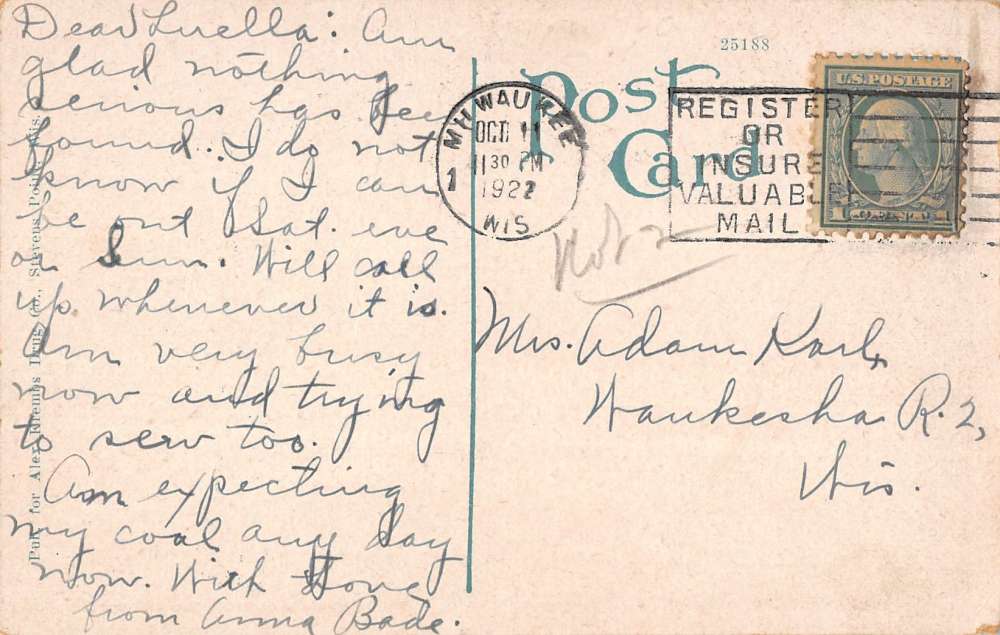 Dear Luella: Am
glad nothing
serious has been
found. I do not
know if I can
be out Sat. eve
or Sun. Will call
up whenever it is.
Am very busy
now and trying
to sew too.
Am expecting
my coal any day
now. With Love
from Anna Bade.
Pub. for Alex Krembs Drug Co., Stevens Point, Wis.
25188
Post
Card
MILWAUKEE
OCT 11
11 30 PM
1922
1
WIS
REGISTER
OR
INSURE
VALUABLE
MAIL
U.S. POSTAGE
1 CENT 1
Mrs. Adam Karl,
Waukesha R. 2,
Wis.